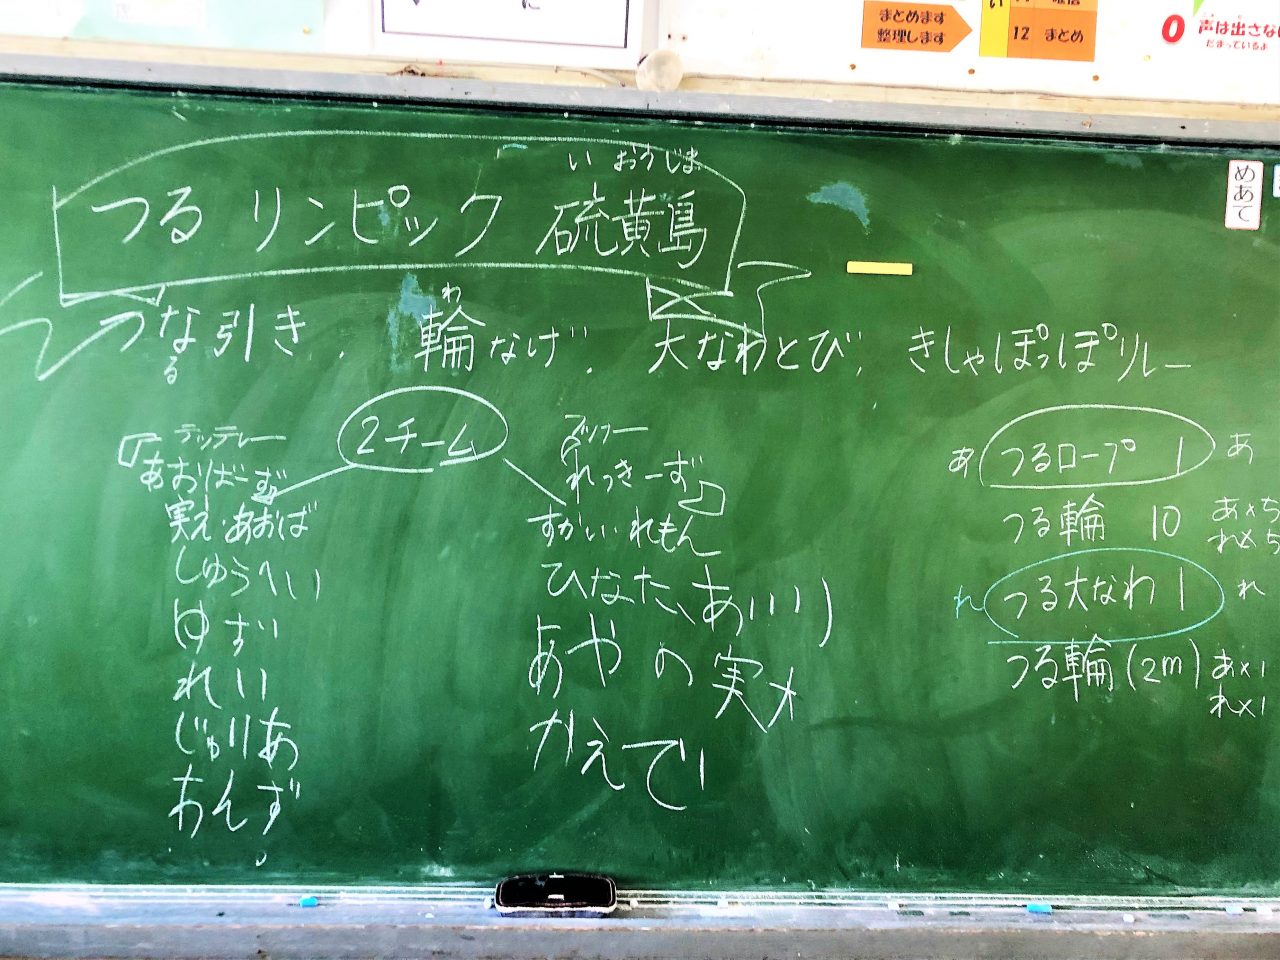 に
まとめます
整理します
12 まとめ
0 声は出さない
だまっているよ
めあて
いおうじま
つるリンピック 硫黄島
わ
つな引き、 輪なげ、 大なわとび、 きしゃぽっぽリレー
る
2チーム
あおりばーず
実え・あおば
しゅうへい
ゆずい
れい
じゅりあ
あんず
れっきーず
すかい・れもん
ひなた、あい
あやの 実
かえで
あ つるロープ 1 あ
つる輪 10 あ×5
れ×5
れ つる大なわ 1 れ
つる輪 (2m) あ×1
れ×1